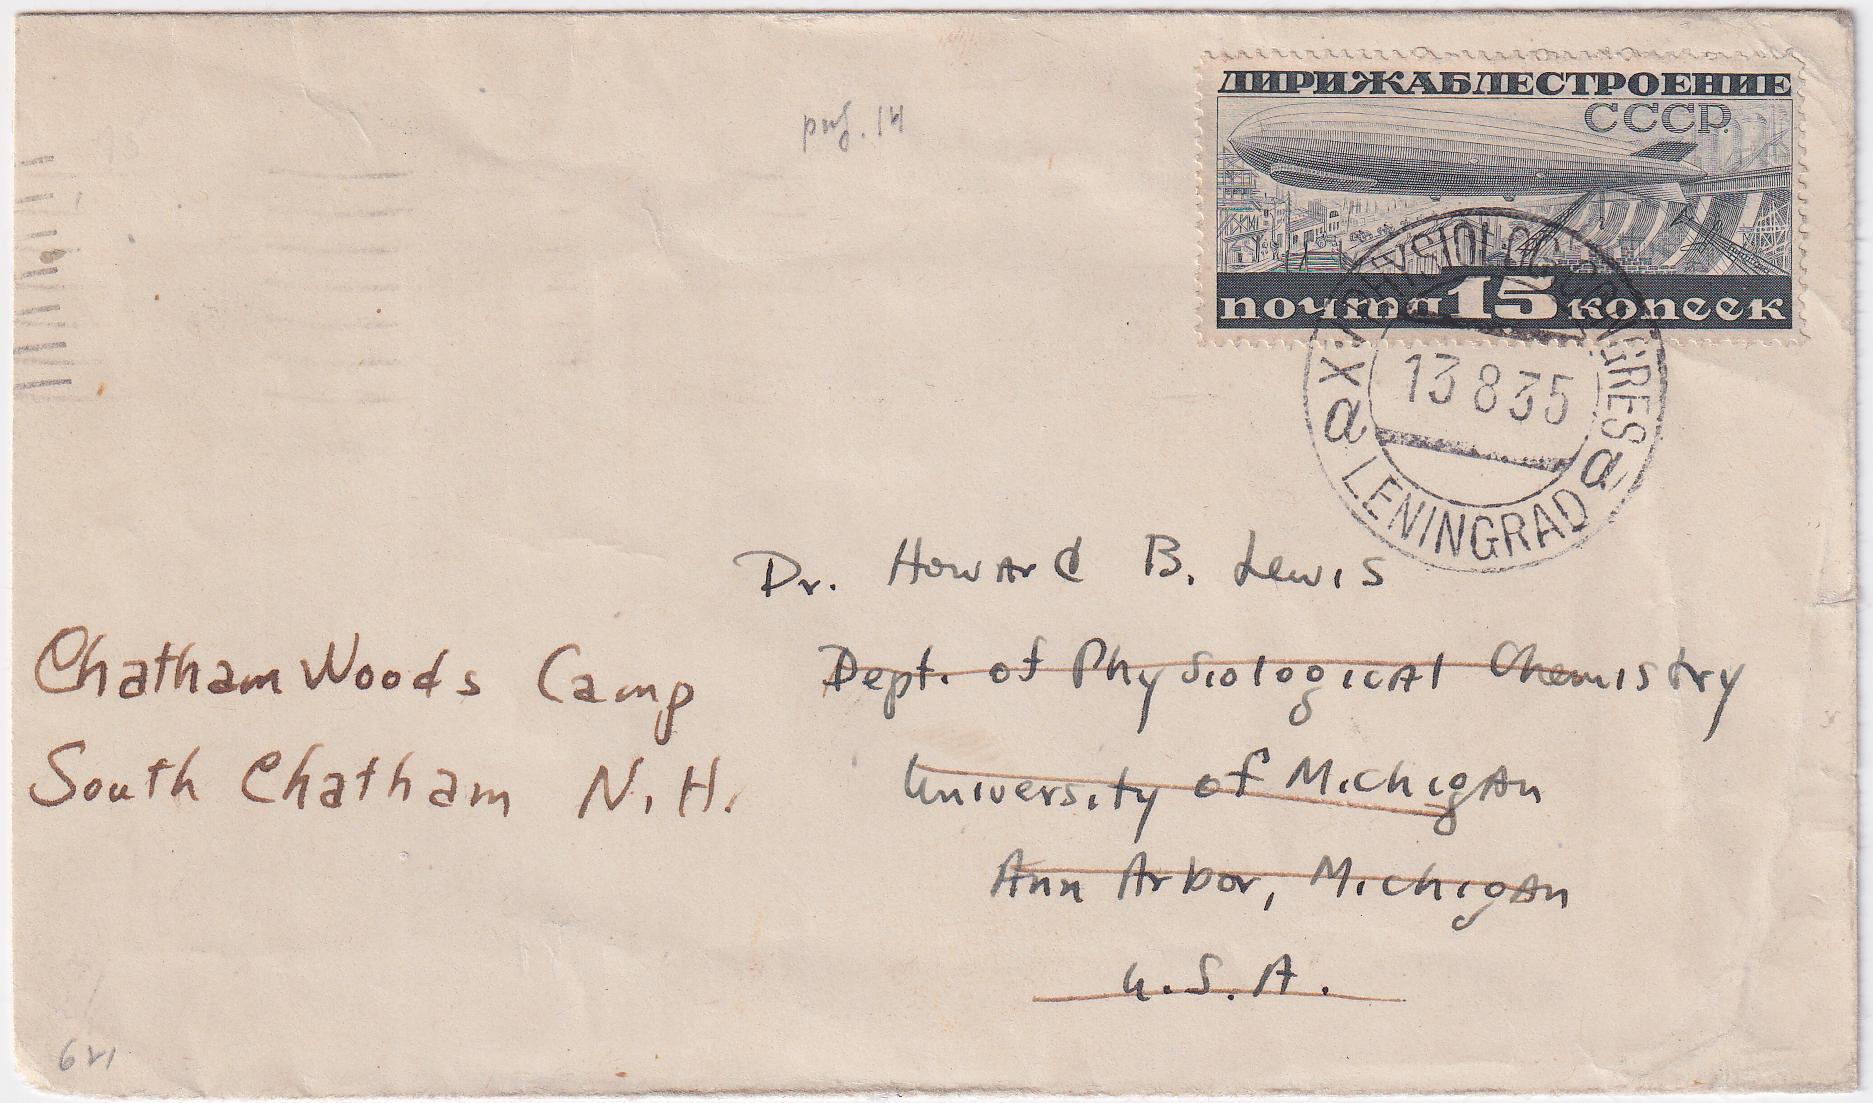 ДИРИЖАБЛЕСТРОЕНИЕ
СССР
почта 15 копеек
XV PHYSIOLOG. CONGRES
13 8 35
a a
LENINGRAD
Dr. Howard B. Lewis
Dept. of Physiological Chemistry
University of Michigan
Ann Arbor, Michigan
U.S.A.
Chatham Woods Camp
South Chatham N.H.